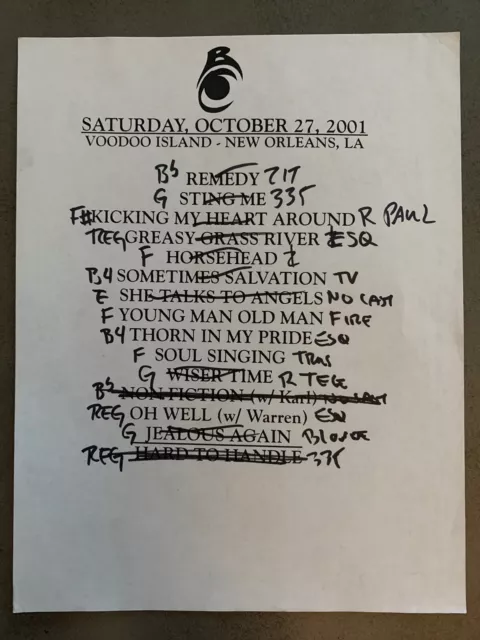 B
SATURDAY, OCTOBER 27, 2001
VOODOO ISLAND - NEW ORLEANS, LA
Bb REMEDY ZIT
G STING ME 335
F# KICKING MY HEART AROUND R PAUL
REG GREASY GRASS RIVER ESQ
F HORSEHEAD Z
B4 SOMETIMES SALVATION TV
E SHE TALKS TO ANGELS NO CAST
F YOUNG MAN OLD MAN FIRE
B4 THORN IN MY PRIDE ESQ
F SOUL SINGING TRUS
G WISER TIME R TELE
Bb NON FICTION (w/ Karl) NO CAST
REG OH WELL (w/ Warren) ESQ
G JEALOUS AGAIN BLONDE
REG HARD TO HANDLE 335